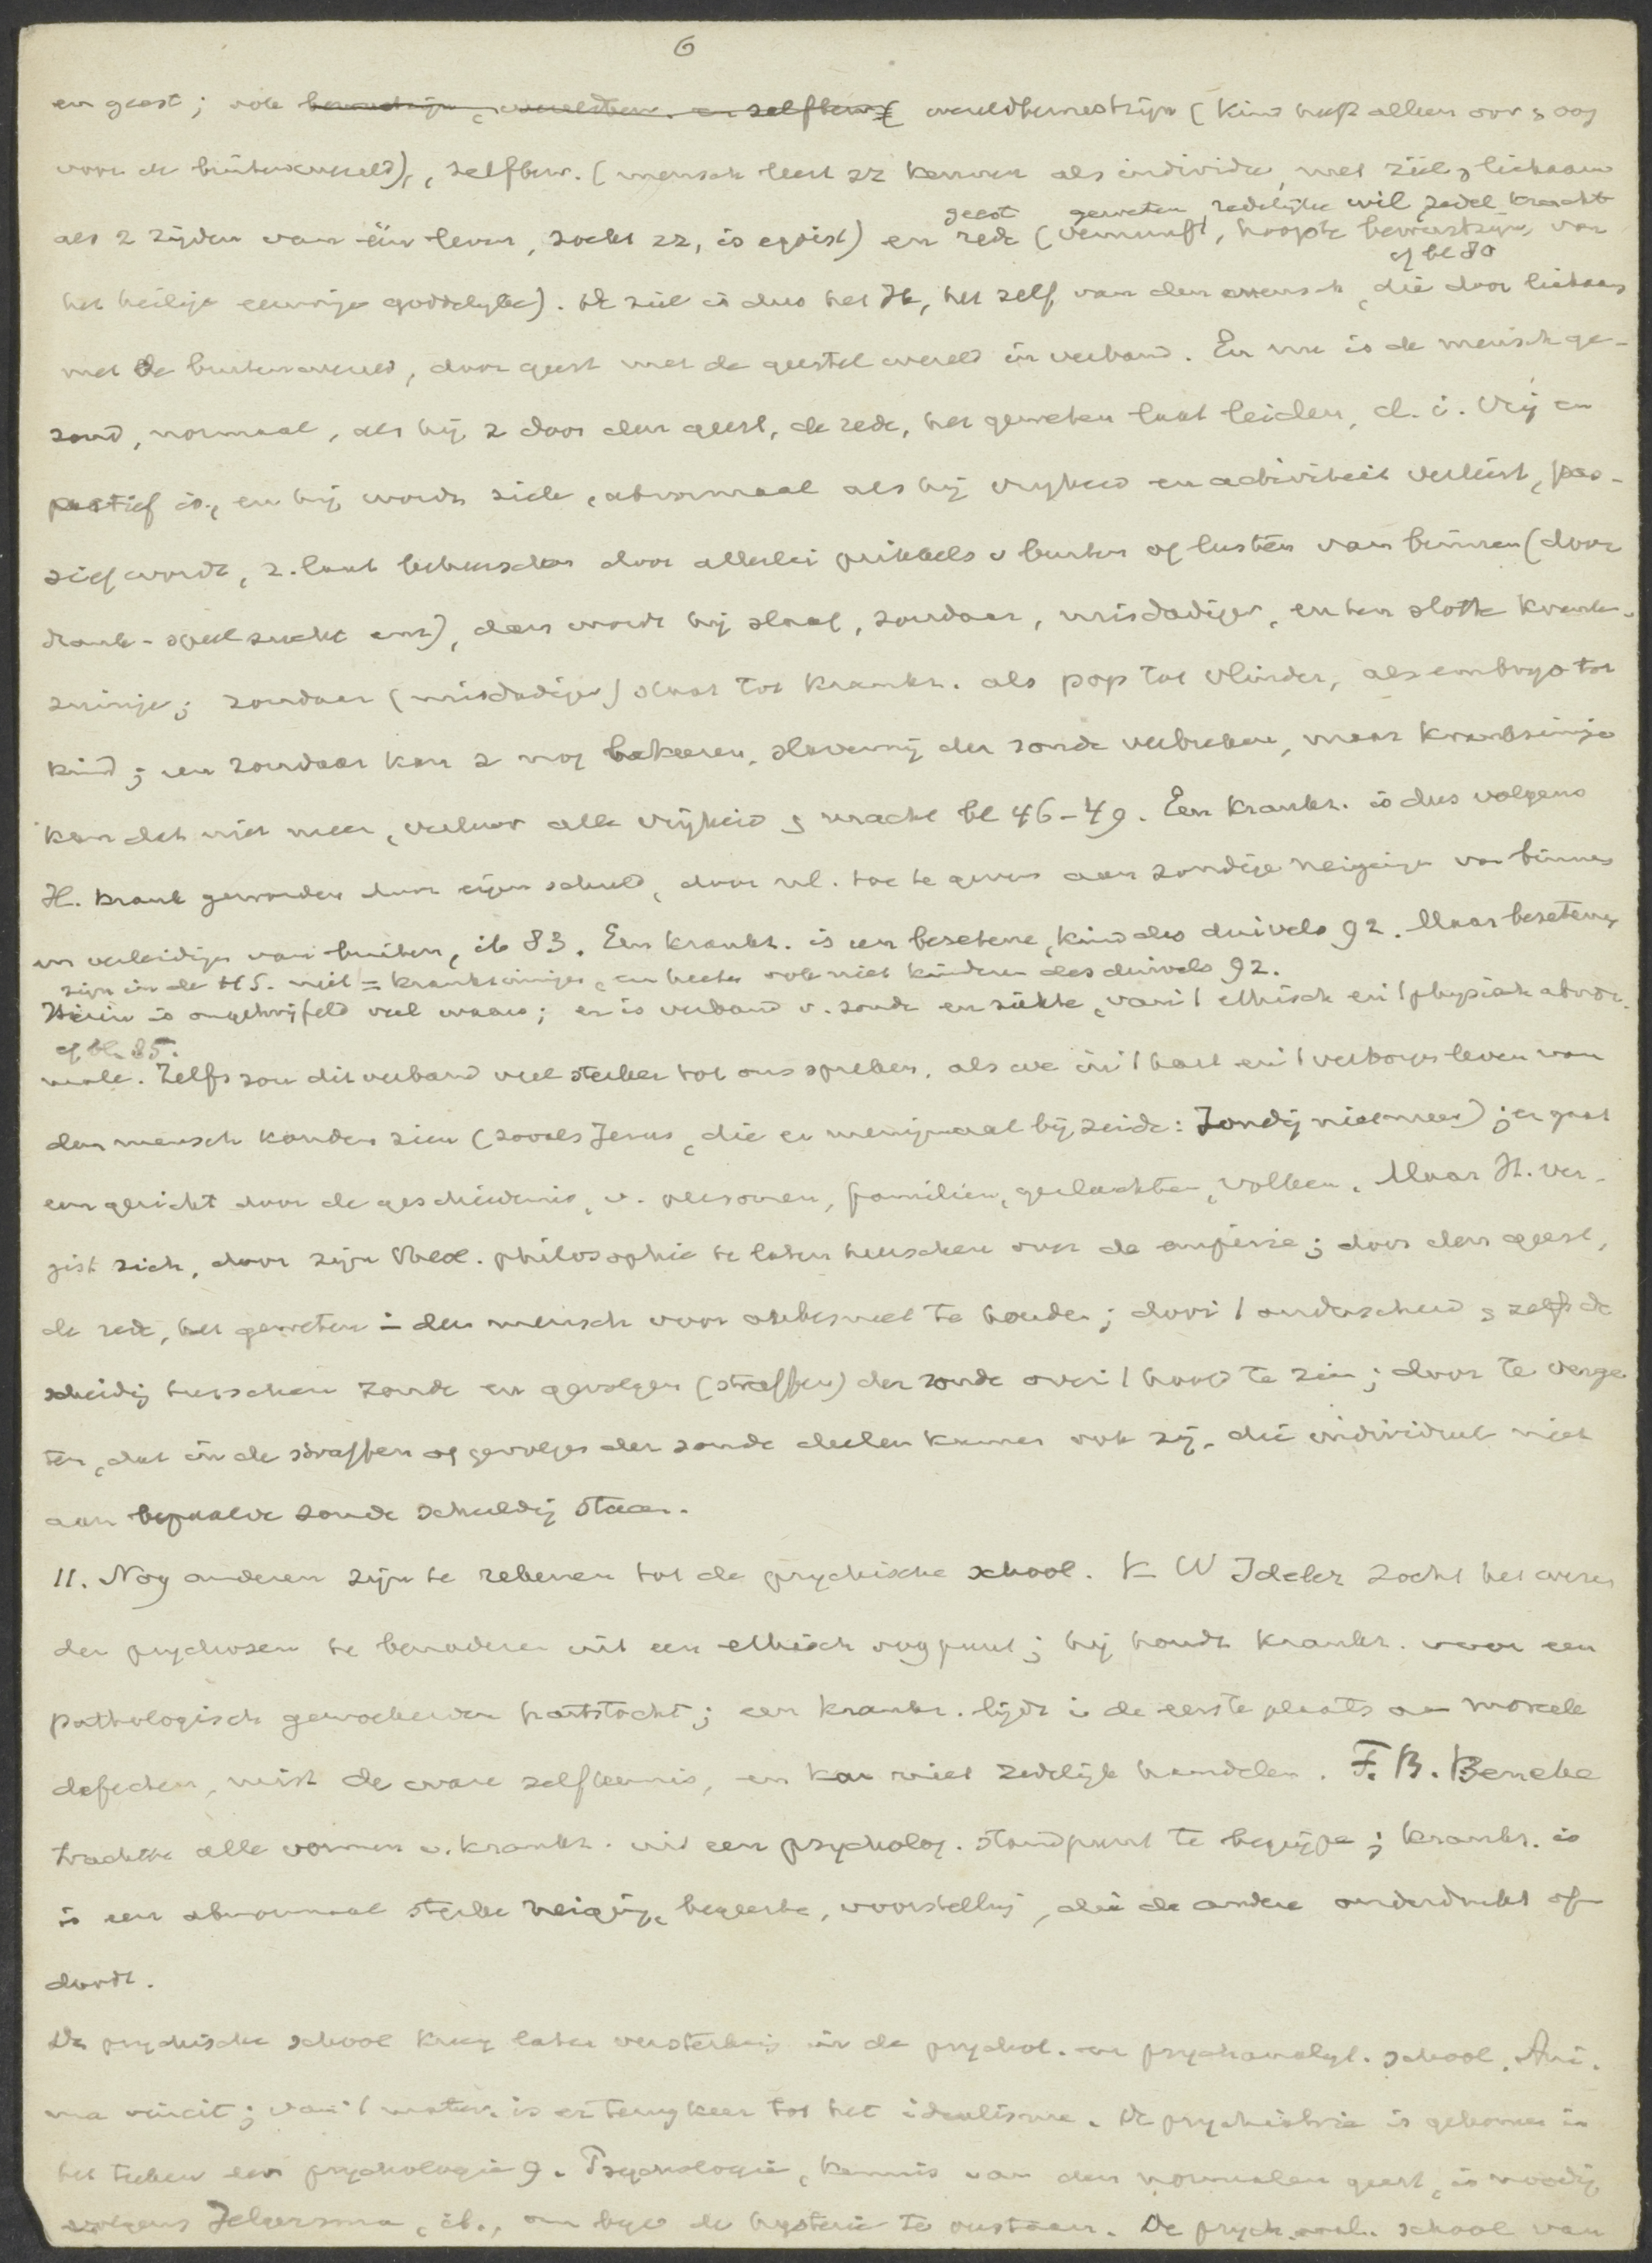 6
en geest; ook bewustzijn, wereldbew. en zelfbew. wereldbewustzijn (kind heeft alleen oor & oog
voor de buitenwereld), zelfbew. (mensch leert zz kennen als individu, met ziel & lichaam
geest geweten, redelijke wil, zedel. kracht
als 2 zijden van één leven, zoekt zz, is egoist) en rede (vernunft, hoogste bewustzijn, van
cf bl 80
het heilige eeuwige goddelyke). De ziel is dus het Ik, het zelf van den mensch, die door lichaam
met de buitenwereld, door geest met de geestel wereld in verband. En nu is de mensch ge-
zond, normaal, als hij z door den geest, de rede, het geweten laat leiden, d. i. vrij en
actief is, en hij wordt ziek, abnormaal als hij vryheid en activiteit verliest, pas-
sief wordt, z. laat beheerschen door allerlei prikkels v buiten of lusten van binnen (door
drank- speelzucht enz), dan wordt hij slaaf, zondaar, misdadiger, en ten slotte krank-
zinnige; zondaar (misdadiger) staat tot krankz. als pop tot vlinder, als embryo tot
kind; een zondaar kan z nog bekeeren, slavernij der zonde verbreken, maar krankzinnige
kan dat niet meer, verloor alle vrijheid & macht bl 46-49. Een krankz. is dus volgens
H. krank geworden door eigen schuld, door nl. toe te geven aan zondige neigingen van binnen
en verleiding van buiten, ib 83. Een krankz. is een bezetene, kind des duivels 92. Maar bezetenen
zijn in de HS. niet = krankzinnigen, en heeten ook niet kinderen des duivels 92.
Hierin is ongetwijfeld veel waars; er is verband v. zonde en ziekte, van 't ethisch en 't physisch abnor-
cf bl. 85.
male. Zelfs zou dit verband veel sterker tot ons spreken, als we in 't hart en 't verborgen leven van
den mensch konden zien (zooals Jezus, die er menigmaal bij zeide: Zondig niet meer); er gaat
een gericht door de geschiedenis, v. personen, familien, geslachten, volken. Maar H. ver-
gist zich, door zijn philosophie te laten heerschen over de empirie; door den geest,
de rede, het geweten in den mensch voor onbesmet te houden; door 't onderscheid & zelfs de
scheidg tusschen zonde en gevolgen (straffen) der zonde over 't hoofd te zien; door te verge-
ten, dat in de straffen of gevolgen der zonde deelen kunnen ook zij, die individueel niet
aan bepaalde zonde schuldig staan.
11. Nog anderen zijn te rekenen tot de psychische school. K W Ideler zocht het wezen
der psychosen te benaderen uit een ethisch oogpunt; hij houdt krankz. voor een
pathologisch geworden hartstocht; een krankz. lijdt in de eerste plaats aan moreele
defecten, mist de ware zelfkennis, en kan niet zedelijk handelen. F. B. Beneke
trachtte alle vormen v. krankz. uit een psycholog. standpunt te begrijpen; krankz. is
is een abnormaal sterke neiging, begeerte, voorstelling, die de andere onderdrukt of
doodt.
De psychische school kreeg later versterking in de psychol. en psychanalyt. school. Ani-
ma vincit; van 't mater. is er terugkeer tot het idealisme. De psychiatrie is gekomen in
het teeken der psychologie 9. Psychologie, kennis van den normalen geest, is noodig
volgens Jelgersma, ib., om bijv de hysterie te verstaan. De psych. anal. school van